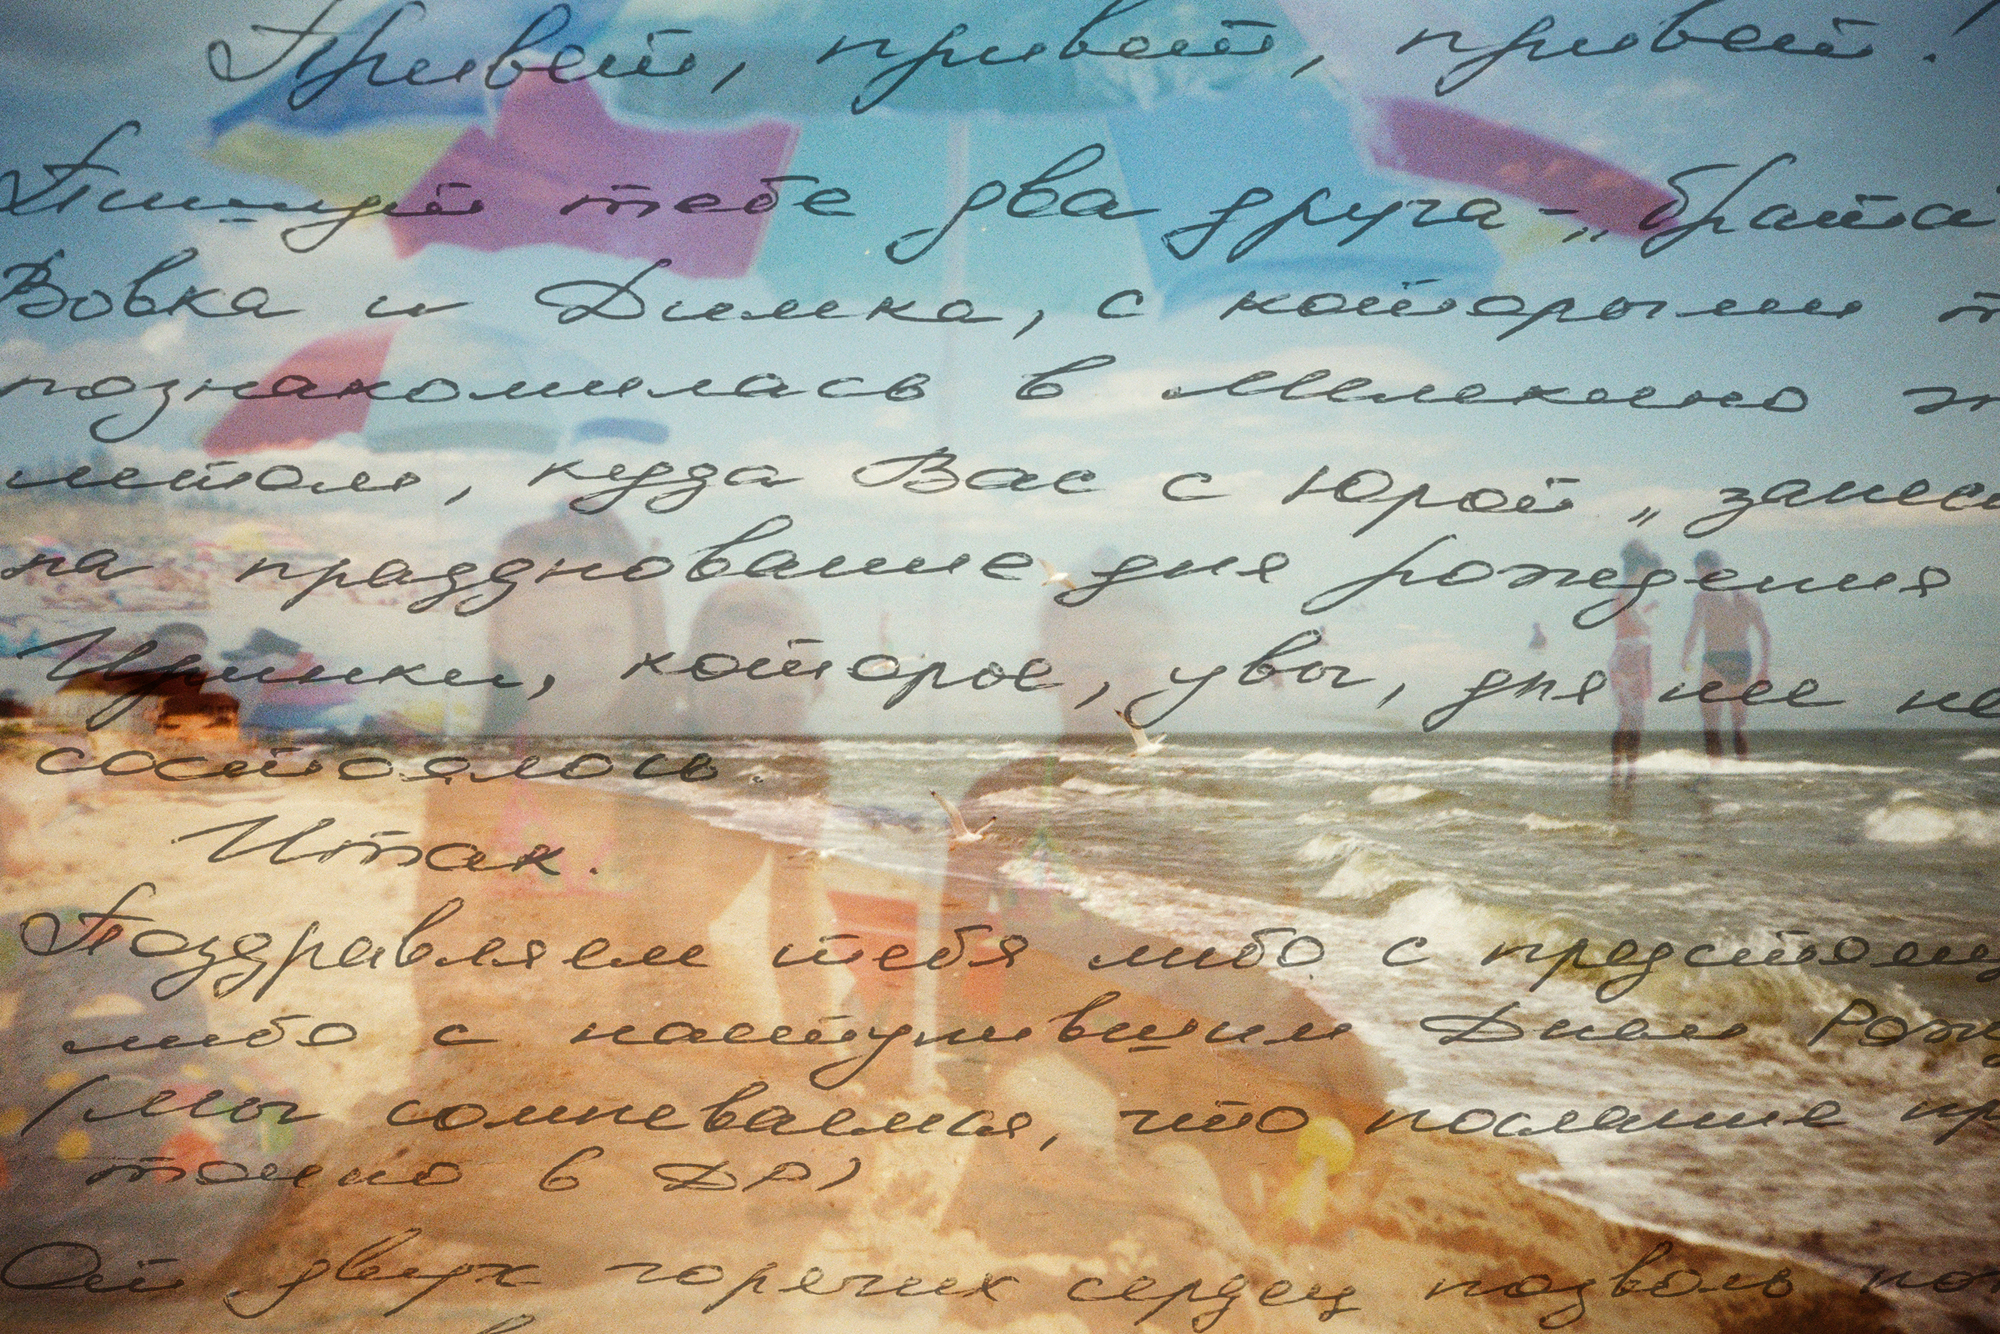 Привет, привет, привет!
Пишут тебе два друга - „брата"
Вовка и Димка, с которыми
познакомилась в Мелекино
летом, куда Вас с Юрой „занесло
на празднование дня рождения
Иринки, которое, увы, для нее не
состоялось.
Итак.
Поздравляем тебя либо с предстоящ
либо с наступившим Днем Рожд
(мы сомневаемся, что послание пр
точно в ДР)
От двух горячих сердец позволь